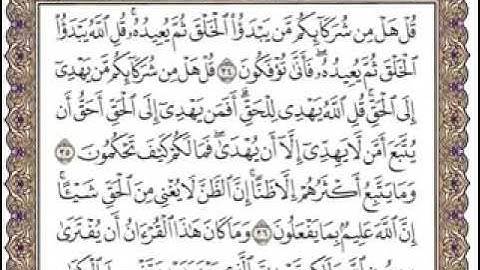 قُلْ هَلْ مِن شُرَكَآئِكُم مَّن يَبْدَؤُا۟ ٱلْخَلْقَ ثُمَّ يُعِيدُهُۥ ۚ قُلِ ٱللَّهُ يَبْدَؤُا۟
ٱلْخَلْقَ ثُمَّ يُعِيدُهُۥ ۖ فَأَنَّىٰ تُؤْفَكُونَ ٣٤ قُلْ هَلْ مِن شُرَكَآئِكُم مَّن يَهْدِىٓ
إِلَى ٱلْحَقِّ ۚ قُلِ ٱللَّهُ يَهْدِى لِلْحَقِّ ۗ أَفَمَن يَهْدِىٓ إِلَى ٱلْحَقِّ أَحَقُّ أَن
يُتَّبَعَ أَمَّن لَّا يَهِدِّىٓ إِلَّآ أَن يُهْدَىٰ ۖ فَمَا لَكُمْ كَيْفَ تَحْكُمُونَ ٣٥
وَمَا يَتَّبِعُ أَكْثَرُهُمْ إِلَّا ظَنًّا ۚ إِنَّ ٱلظَّنَّ لَا يُغْنِى مِنَ ٱلْحَقِّ شَيْـًٔا ۚ
إِنَّ ٱللَّهَ عَلِيمٌۢ بِمَا يَفْعَلُونَ ٣٦ وَمَا كَانَ هَٰذَا ٱلْقُرْءَانُ أَن يُفْتَرَىٰ